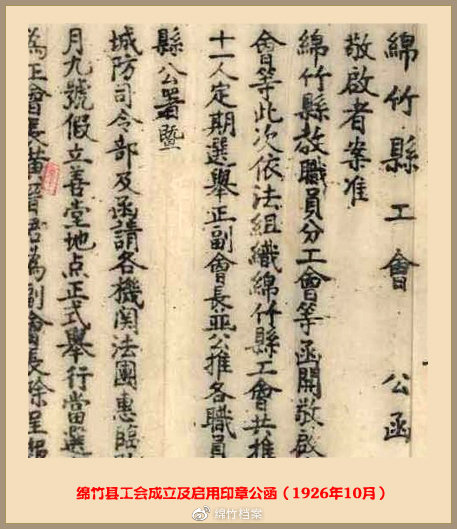 綿竹縣工會 公函
敬啟者案准
綿竹縣教職員分工會等函開敬啟
會等此次依法組織綿竹縣工會共推
十一人定期選舉正副會長並公推各職員
縣公署暨
城防司令部及函請各機関法團惠臨
月九號假立善堂地点正式舉行當選
為正會長 為副會長除呈報
绵竹县工会成立及启用印章公函（1926年10月）
绵竹档案